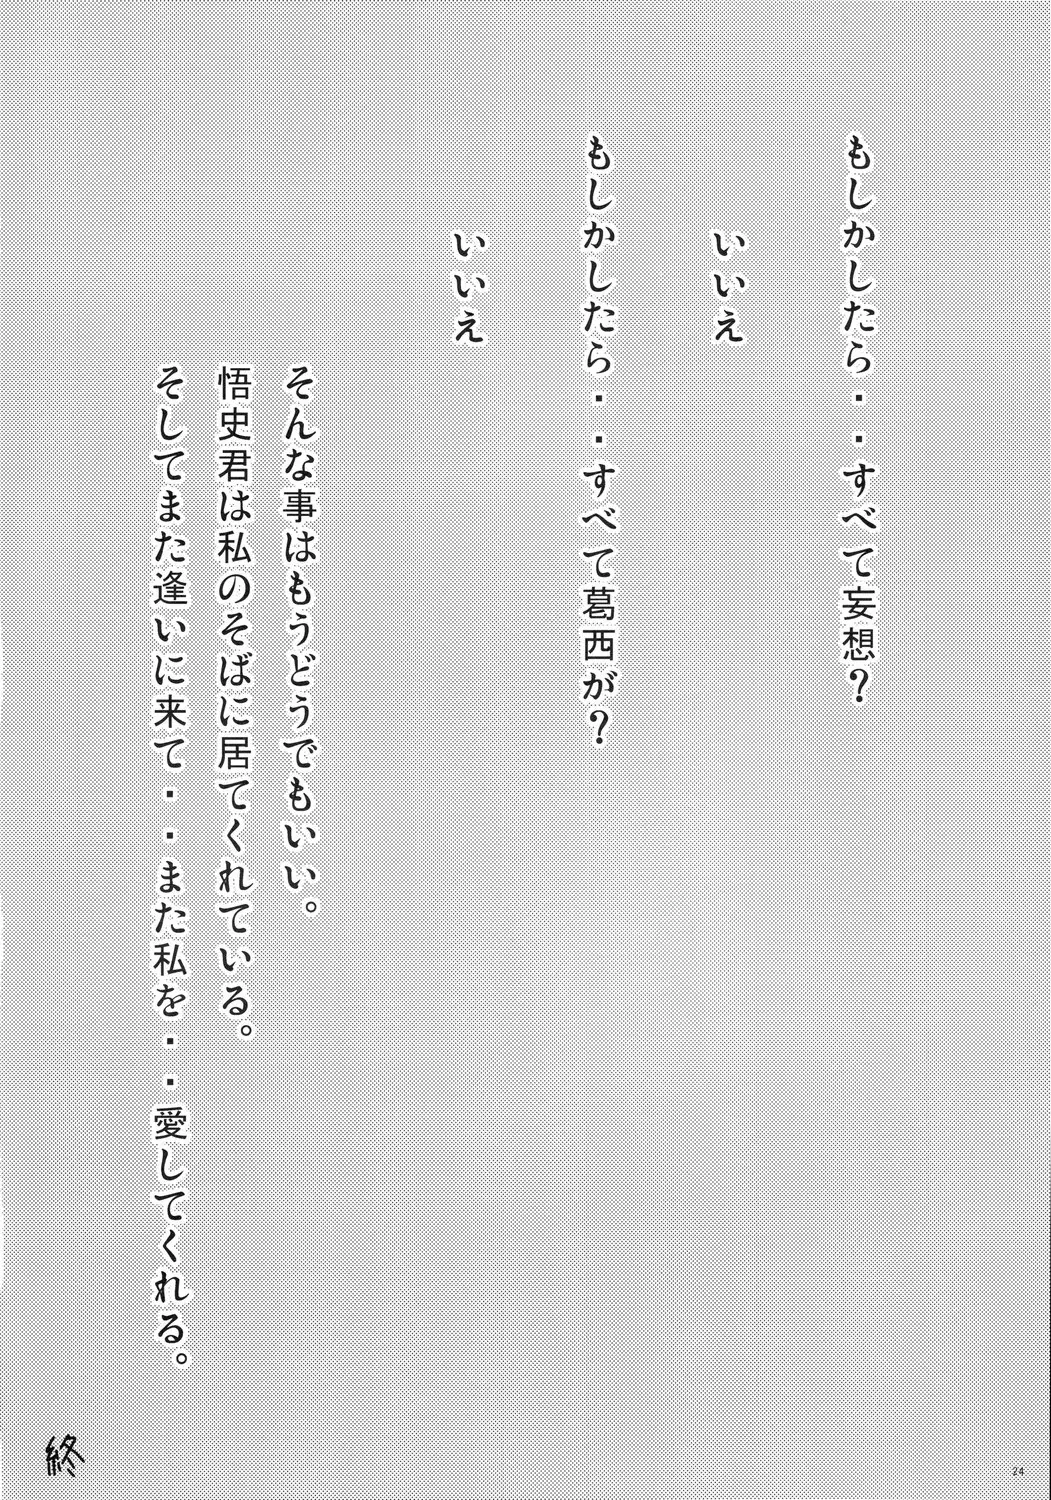 もしかしたら・・すべて妄想？
いいえ
もしかしたら・・すべて葛西が？
いいえ
そんな事はもうどうでもいい。
悟史君は私のそばに居てくれている。
そしてまた逢いに来て・・また私を・・愛してくれる。
終
24